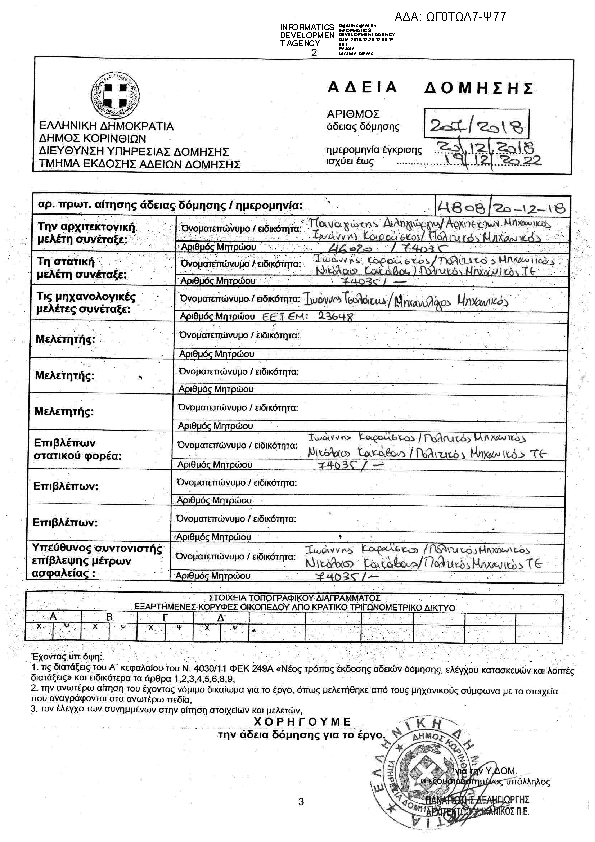 ΑΔΑ: ΩΓ0ΤΩΛ7-Ψ77
INFORMATICS
DEVELOPMEN
T AGENCY
2
ΕΛΛΗΝΙΚΗ ΔΗΜΟΚΡΑΤΙΑ
ΔΗΜΟΣ ΚΟΡΙΝΘΙΩΝ
ΔΙΕΥΘΥΝΣΗ ΥΠΗΡΕΣΙΑΣ ΔΟΜΗΣΗΣ
ΤΜΗΜΑ ΕΚΔΟΣΗΣ ΑΔΕΙΩΝ ΔΟΜΗΣΗΣ
ΑΔΕΙΑ ΔΟΜΗΣΗΣ
ΑΡΙΘΜΟΣ
άδειας δόμησης 207/2018
ημερομηνία έγκρισης 20.12.2018
ισχύει έως 19.12.2022
αρ. πρωτ. αίτησης άδειας δόμησης / ημερομηνία: 4808/20-12-18
Την αρχιτεκτονική μελέτη συνέταξε:
Όνοματεπώνυμο / ειδικότητα: Παναγιώτης /Αρχιτέκτων Μηχανικός
Ιωάννης Καραΐσκος/Πολιτικός Μηχανικός
Αριθμός Μητρώου /74035
Τη στατική μελέτη συνέταξε:
Όνοματεπώνυμο / ειδικότητα: Ιωάννης Καραΐσκος/Πολιτικός Μηχανικός
Νικόλαος Κακάβας/Πολιτικός Μηχανικός ΤΕ
Αριθμός Μητρώου 74035/-
Τις μηχανολογικές μελέτες συνέταξε:
Όνοματεπώνυμο / ειδικότητα: Ιωάννης /Μηχανολόγος Μηχανικός
Αριθμός Μητρώου ΕΕΤΕΜ: 23648
Μελετητής:
Όνοματεπώνυμο / ειδικότητα:
Αριθμός Μητρώου
Μελετητής:
Όνοματεπώνυμο / ειδικότητα:
Αριθμός Μητρώου
Μελετητής:
Όνοματεπώνυμο / ειδικότητα:
Αριθμός Μητρώου
Επιβλέπων στατικού φορέα:
Όνοματεπώνυμο / ειδικότητα: Ιωάννης Καραΐσκος/Πολιτικός Μηχανικός
Νικόλαος Κακάβας/Πολιτικός Μηχανικός ΤΕ
Αριθμός Μητρώου 74035/-
Επιβλέπων:
Όνοματεπώνυμο / ειδικότητα:
Αριθμός Μητρώου
Επιβλέπων:
Όνοματεπώνυμο / ειδικότητα:
Αριθμός Μητρώου
Υπεύθυνος συντονιστής επίβλεψης μέτρων ασφαλείας :
Όνοματεπώνυμο / ειδικότητα: Ιωάννης Καραΐσκος/Πολιτικός Μηχανικός
Νικόλαος Κακάβας/Πολιτικός Μηχανικός ΤΕ
Αριθμός Μητρώου 74035/-
ΣΤΟΙΧΕΙΑ ΤΟΠΟΓΡΑΦΙΚΟΥ ΔΙΑΓΡΑΜΜΑΤΟΣ
ΕΞΑΡΤΗΜΕΝΕΣ ΚΟΡΥΦΕΣ ΟΙΚΟΠΕΔΟΥ ΑΠΟ ΚΡΑΤΙΚΟ ΤΡΙΓΩΝΟΜΕΤΡΙΚΟ ΔΙΚΤΥΟ
Α Β Γ Δ
χ ψ χ ψ χ ψ χ ψ
Έχοντας υπ όψη:
1. τις διατάξεις του Α΄ κεφαλαίου του Ν. 4030/11 ΦΕΚ 249Α «Νέος τρόπος έκδοσης αδειών δόμησης, ελέγχου κατασκευών και λοιπές
διατάξεις» και ειδικότερα τα άρθρα 1,2,3,4,5,6,8,9,
2. την ανωτέρω αίτηση του έχοντος νόμιμο δικαίωμα για το έργο, όπως μελετήθηκε από τους μηχανικούς σύμφωνα με τα στοιχεία
που αναγράφονται στα ανωτέρω πεδία,
3. τον έλεγχο των συνημμένων στην αίτηση στοιχείων και μελετών,
ΧΟΡΗΓΟΥΜΕ
την άδεια δόμησης για το έργο.
για την Υ.ΔΟΜ.
ο εξουσιοδοτημένος υπάλληλος
ΠΑΝΑΓΙΩΤΗΣ ΔΕΛΗΓΙΩΡΓΗΣ
ΑΡΧΙΤΕΚΤΩΝ ΜΗΧΑΝΙΚΟΣ Π.Ε.
3